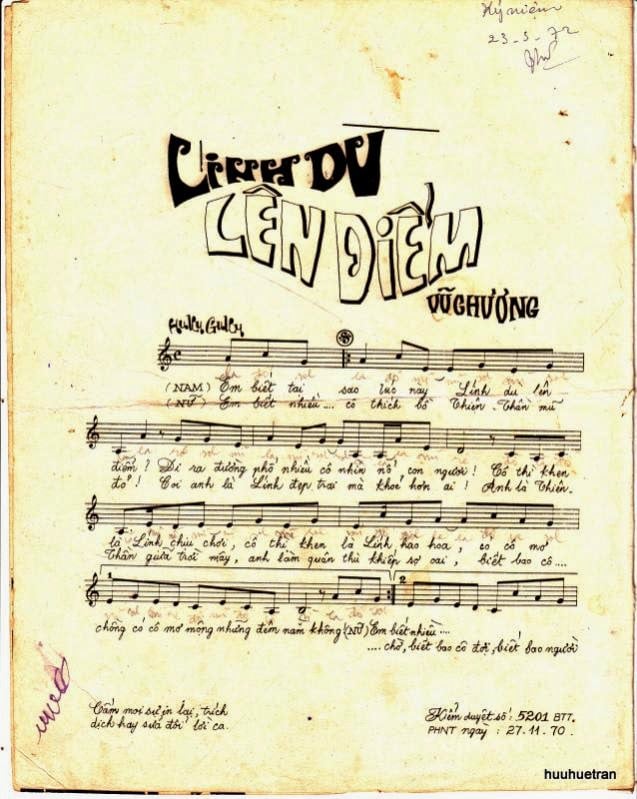 Kỷ niệm
23-5-72
LÍNH DÙ
LÊN ĐIỂM
VŨ CHƯƠNG
Hully Gully
(NAM) Em biết tại sao lúc này Lính dù lên
(NỮ) Em biết nhiều... cô thích bồ Thiên Thần mũ
điểm? Đi ra đường phố nhiều cô nhìn nổ con ngươi! Cô thì khen
đỏ! Coi anh là Lính đẹp trai mà khoẻ hơn ai! Anh là Thiên
là Lính chịu chơi, cô thì khen là Lính hào hoa, có cô mơ
Thần giữa trời mây, anh làm quân thù khiếp sợ oai, biết bao cô....
1
2
chồng có cô mơ mộng những đêm nằm không. (NỮ) Em biết nhiều....
....chờ, biết bao cô đợi, biết bao người
Cấm mọi sự in lại, trích
dịch hay sửa đổi lời ca.
Kiểm duyệt số: 5201 BTT.
PHNT ngày: 27.11.70.
huuhuetran